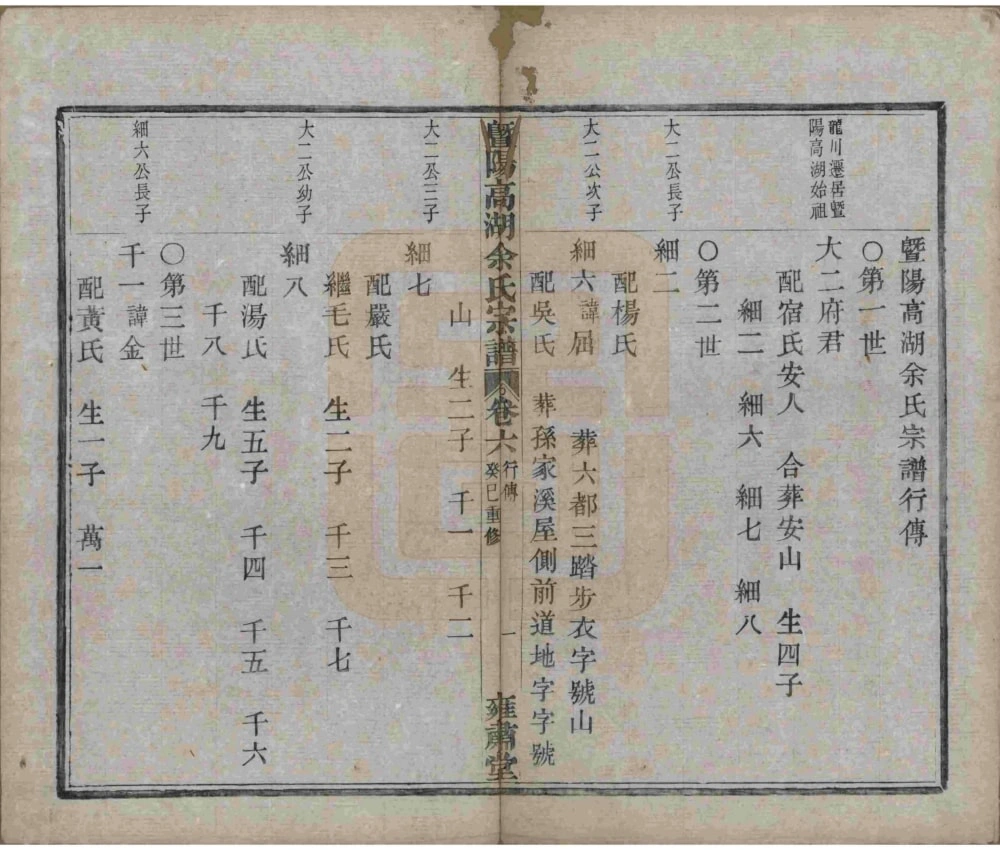 暨陽高湖余氏宗譜行傳
〇第一世
龍川遷居暨
陽高湖始祖
大二府君
配宿氏安人 合葬安山 生四子
細二 細六 細七 細八
〇第二世
大二公長子
細二
配楊氏
大二公次子
細六 諱屆 葬六都三踏步衣字號山
配吳氏 葬孫家溪屋側前道地字字號
暨陽高湖余氏宗譜 卷六 行傳 癸巳重修 一 雍肅堂
山 生二子 千一 千二
大二公三子
細七
配嚴氏
繼毛氏 生二子 千三 千七
大二公幼子
細八
配湯氏 生五子 千四 千五 千六
千八 千九
〇第三世
細六公長子
千一 諱金
配黃氏 生一子 萬一